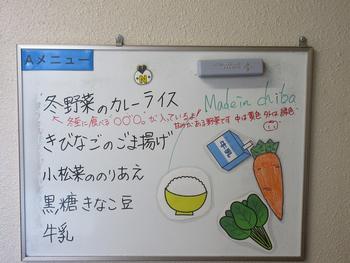 Aメニュー
N
冬野菜のカレーライス
Made in chiba
冬至に食べる〇〇〇〇が入っているよ!
甘みがある野菜です 中は黄色 外は緑色
きびなごのごま揚げ
牛乳
小松菜ののりあえ
黒糖きなこ豆
牛乳